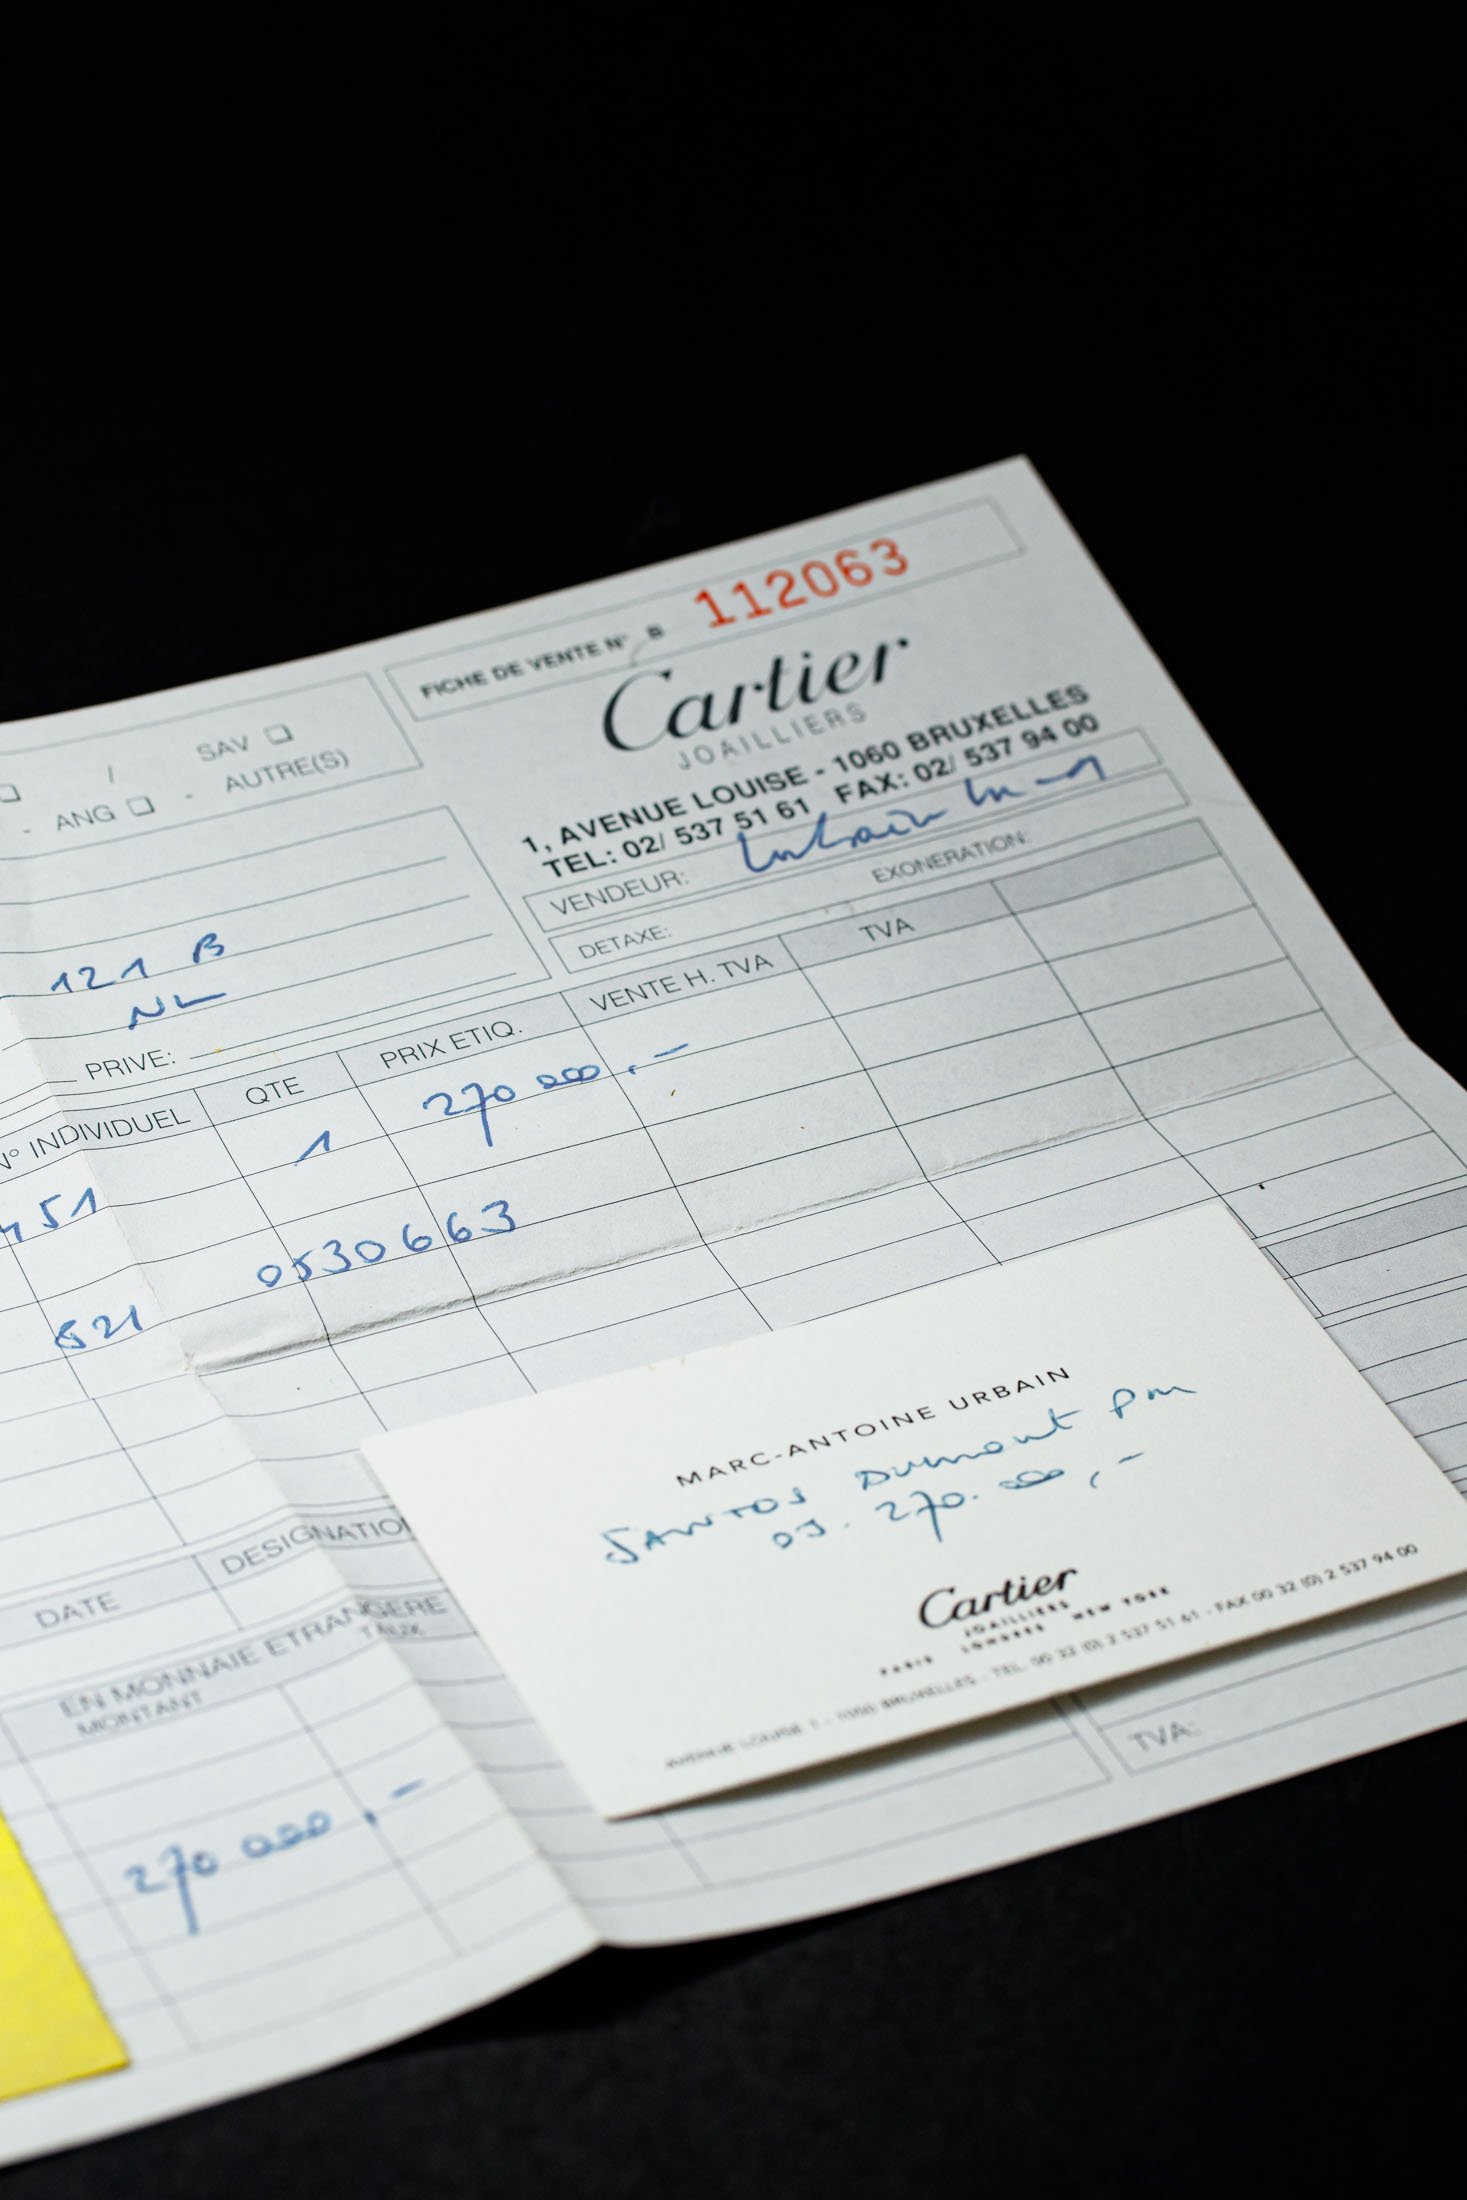 FICHE DE VENTE N° B 112063
Cartier
JOAILLIERS
1, AVENUE LOUISE - 1060 BRUXELLES
TEL: 02/ 537 51 61 FAX: 02/ 537 94 00
VENDEUR: Urbain
DETAXE: EXONERATION:
/ SAV
- ANG - AUTRE(S)
121 B
NL
PRIVE:
N° INDIVIDUEL QTE PRIX ETIQ. VENTE H. TVA TVA
51 1 270 000,-
821 0530663
MARC-ANTOINE URBAIN
SANTOS DUMONT PM
OJ. 270.000,-
Cartier
JOAILLIERS
PARIS LONDRES NEW YORK
AVENUE LOUISE 1 - 1050 BRUXELLES - TEL. 00 32 (0) 2 537 51 61 - FAX 00 32 (0) 2 537 94 00
DATE DESIGNATIO
EN MONNAIE ETRANGERE
MONTANT TAUX
270 000,-
TVA: